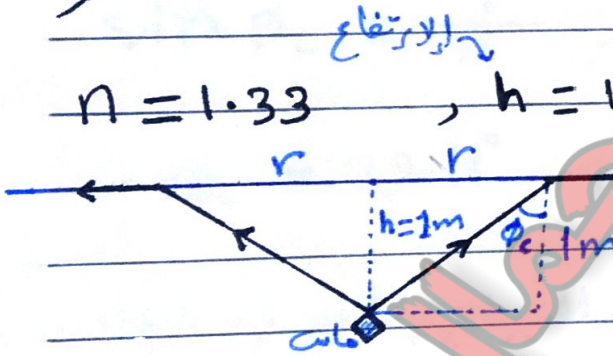 الارتفاع
n = 1.33 , h = 1
r r
h=1m φc 1m
ماس